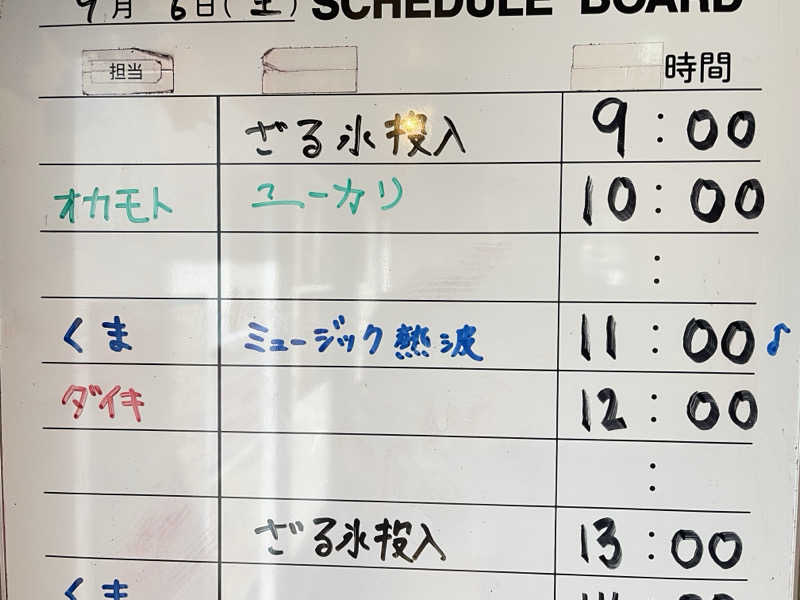 9月 6日(土) SCHEDULE BOARD
担当 時間
ざる氷投入 9:00
オカモト ユーカリ 10:00
:
くま ミュージック熱波 11:00♪
ダイキ 12:00
:
ざる氷投入 13:00
くま